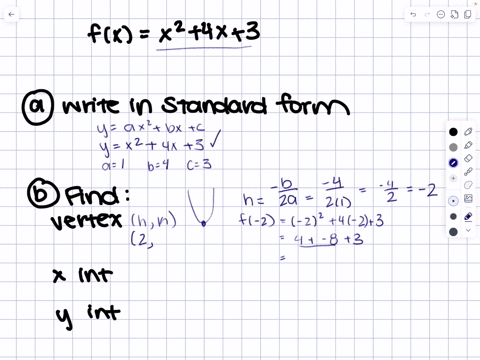 f(x) = x² + 4x + 3
ⓐ Write in Standard form
y = ax² + bx + c
y = x² + 4x + 3 ✓
a=1 b=4 c=3
ⓑ Find:
vertex (h, k)
(2,
h = -b/2a = -4/2(1) = -4/2 = -2
f(-2) = (-2)² + 4(-2) + 3
= 4 + -8 + 3
=
x int
y int